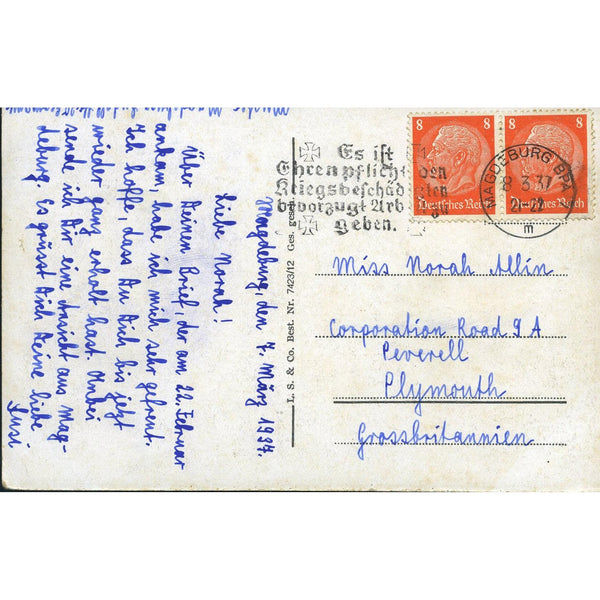 Magdeburg, den 7. März 1937.
Liebe Norah!
Über Deinen Brief, der am 22. Februar
ankam, habe ich mich sehr gefreut.
Ich hoffe, dass Du Dich bis jetzt
wieder ganz erholt hast. Anbei
sende ich Dir eine Ansicht aus Mag-
deburg. Es grüsst Dich Deine liebe
Susi
L. S. & Co. Best. Nr. 7423/12 Ges. gesch.
Es ist
Ehrenpflicht den
Kriegsbeschäd ten
bevorzugt Arb
geben.
8 8
Deutsches Reich Deutsches Reich
MAGDEBURG BPA
8.3.37
21-22
m
Miss Norah Allin
Corporation Road 9 A
Peverell
Plymouth
Grossbritannien